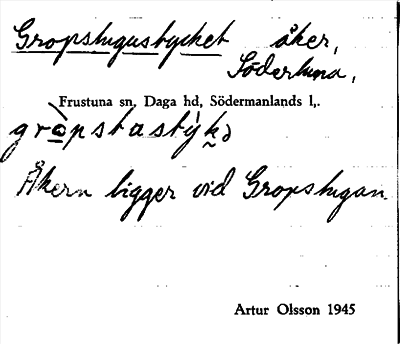 Gropstugustycket åker,
Söderluna,
Frustuna sn, Daga hd, Södermanlands l,.
gròpstastỳkə
Åkern ligger vid Gropstugan.
Artur Olsson 1945